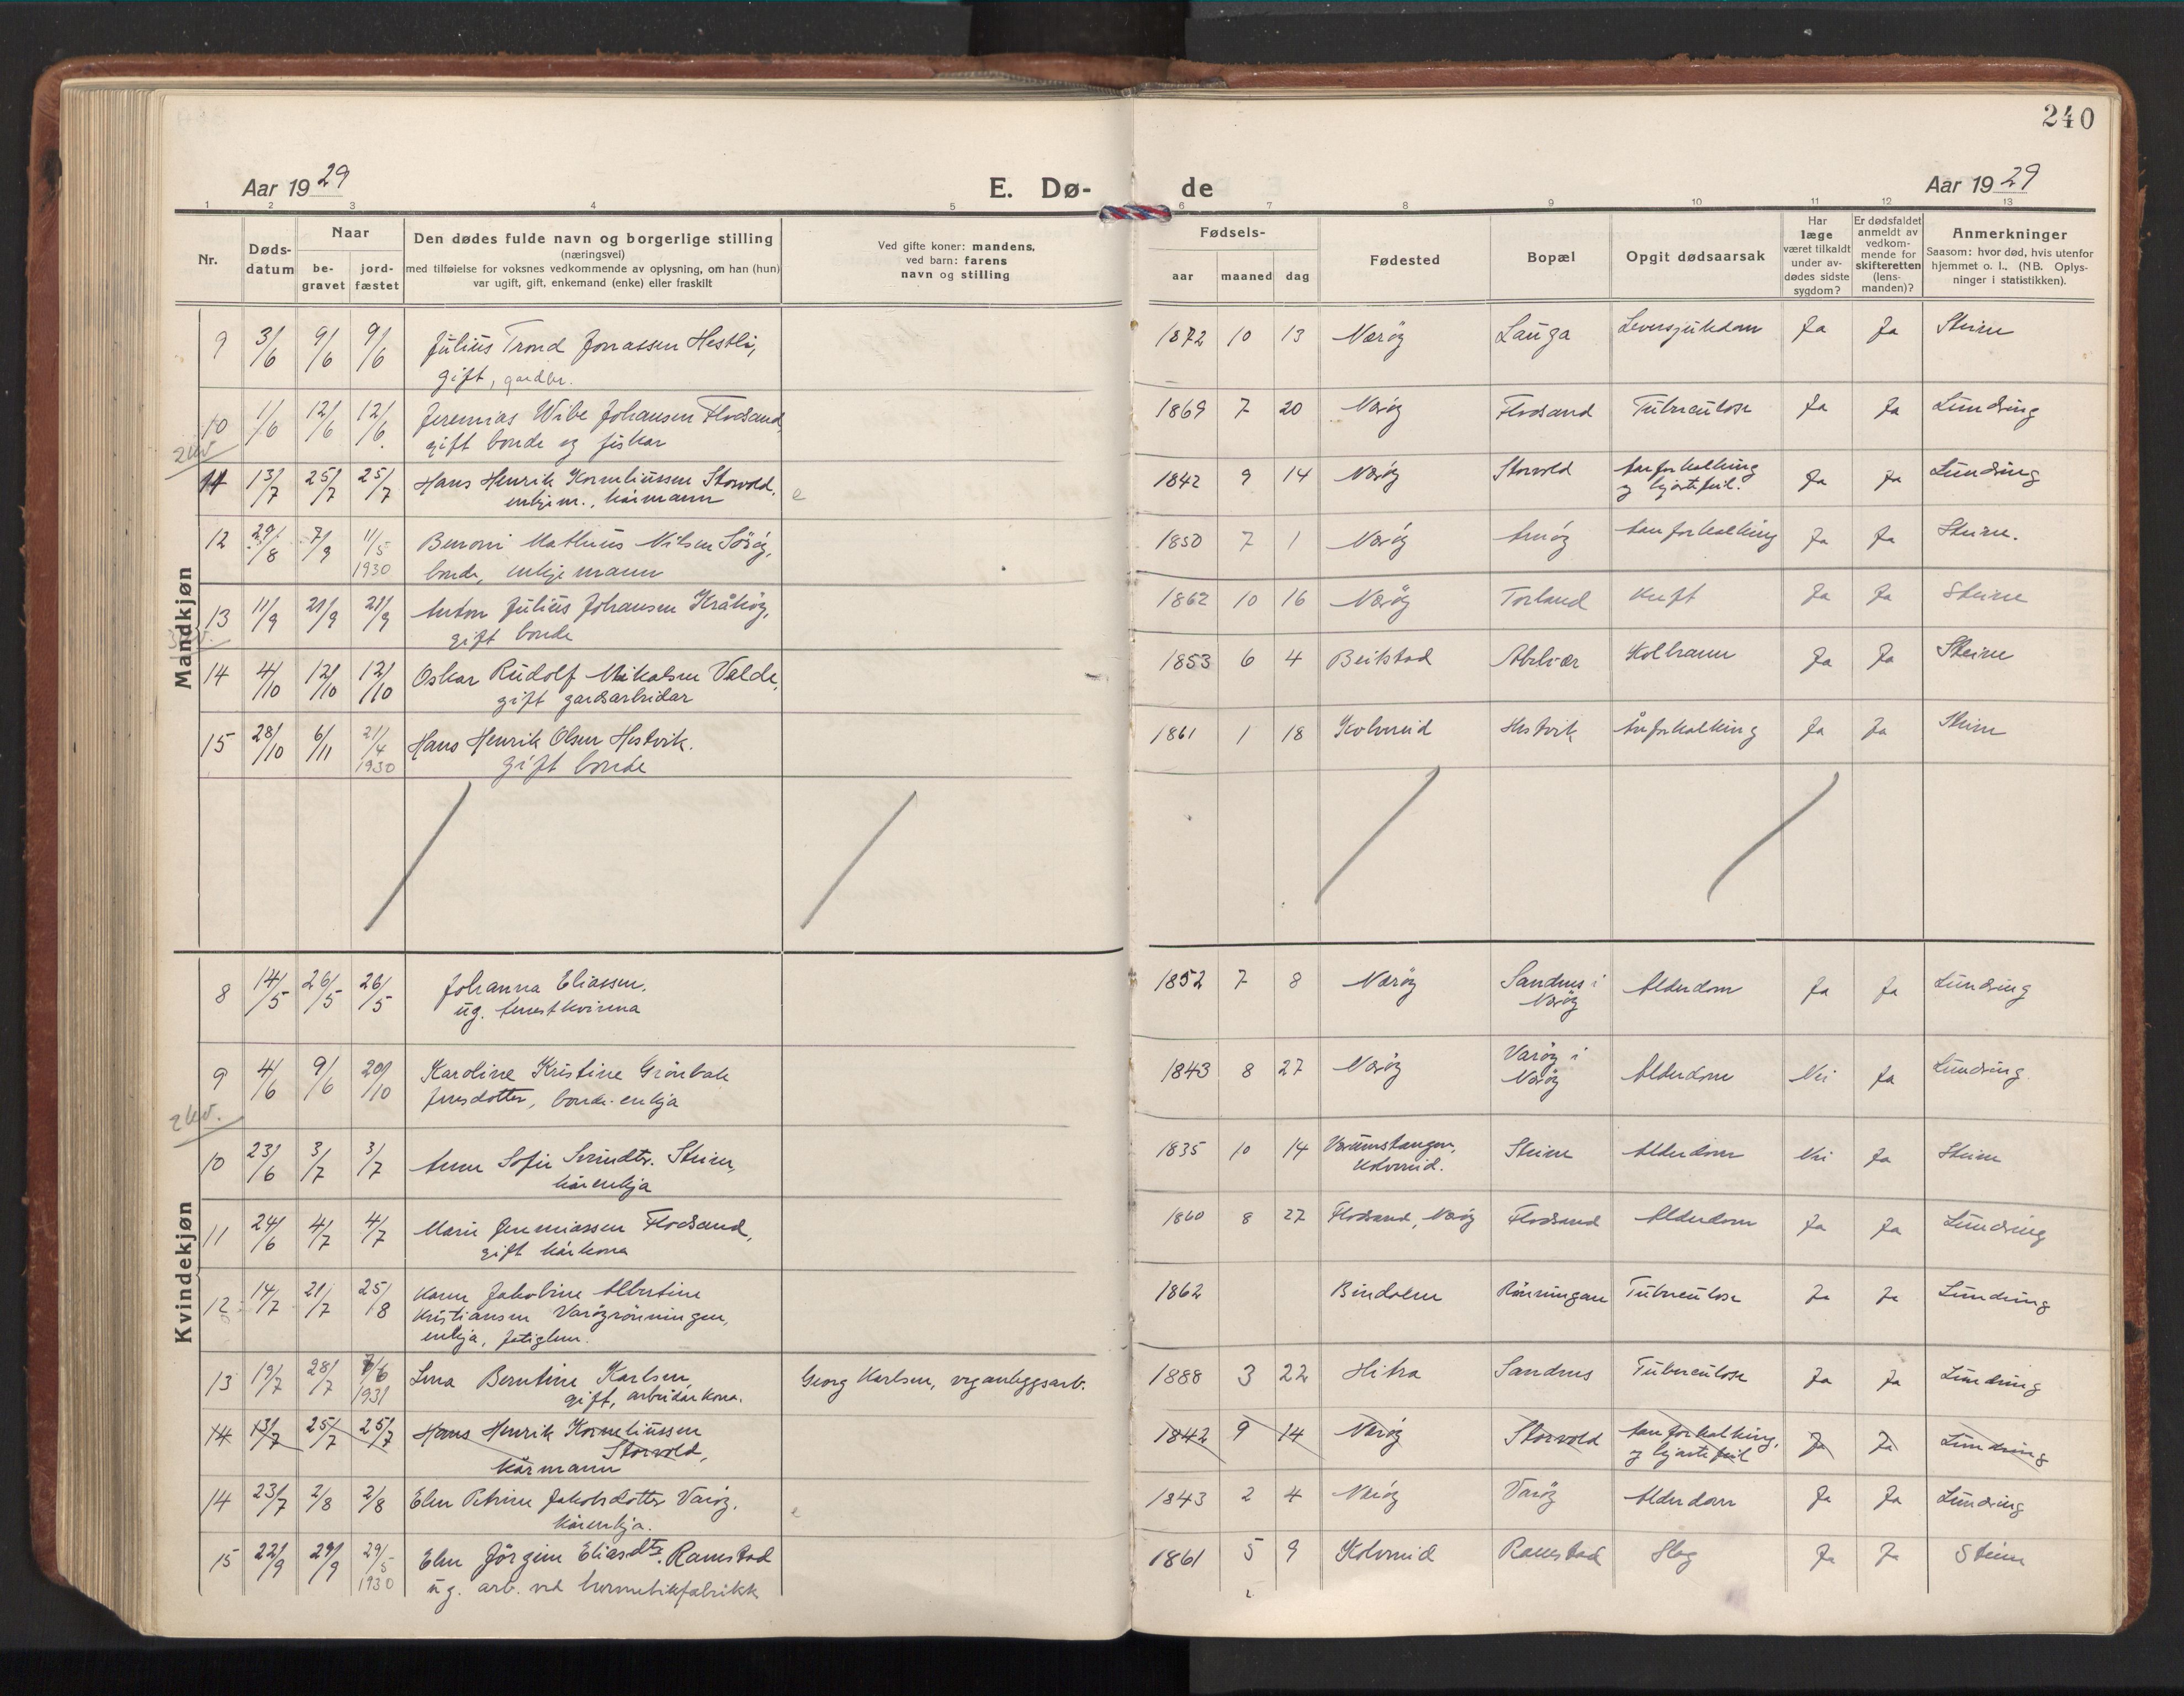 240
Aar 1929 E. Dø- de Aar 1929
1 2 3 4 5 6 7 8 9 10 11 12 13
Nr.
Døds-datum
Naar
be-gravet
jord-fæstet
Den dødes fulde navn og borgerlige stilling
(næringsvei)
med tilføielse for voksnes vedkommende av oplysning, om han (hun)
var ugift, gift, enkemand (enke) eller fraskilt
Ved gifte koner: mandens,
ved barn: farens
navn og stilling
Fødsels-
aar maaned dag
Fødested
Bopæl
Opgit dødsaarsak
Har
læge
været tilkaldt
under av-
dødes sidste
sygdom?
Er dødsfaldet
anmeldt av
vedkom-
mende for
skifteretten
(lens-
manden)?
Anmerkninger
Saasom: hvor død, hvis utenfor
hjemmet o. l., (NB. Oplys-
ninger i statistikken).
Mandkjøn
9 3/6 9/6 9/6 Julius Trond Jonassen Hestli, 1872 10 13 Nærøy Lauga Leversjukdom Ja Ja Steine
gift, gardbr.
10 1/6 12/6 12/6 Jeremias Wibe Johansen Flodsand, 1869 7 20 Nærøy Flodsand Tuberculose Ja Ja Lundring
gift bonde og fiskar
11 13/7 25/7 25/7 Hans Henrik Korneliussen Storvold, 1842 9 14 Nærøy Storvold Aareforkalking Ja Ja Lundring
enkjem., kårmann e og hjartefeil.
12 29/8 7/9 11/5 1930 Benoni Mathius Nilsen Sörøy, 1850 7 1 Nærøy Arnøy Aareforkalking Ja Ja Steine.
bonde, enkjemann
13 11/9 21/9 21/9 Anton Julius Johansen Kråköy, 1862 10 16 Nærøy Torland Kreft Ja Ja Steine
gift bonde
14 4/10 12/10 12/10 Oskar Rudolf Mikalsen Valde, 1853 6 4 Beitstad Abelvær Kolbrann Ja Ja Steine
gift gardsarbeidar
15 28/10 6/11 21/4 1930 Hans Henrik Olsen Hestvik. 1861 1 18 Kolvereid Hestvik Åreforkalking Ja Ja Steine
gift bonde
Kvindekjøn
8 14/5 26/5 26/5 Johanna Eliassen, 1852 7 8 Nærøy Sandnes i Nærøy Alderdom Ja Ja Lundring
ug. tenestkvinna
9 4/6 9/6 20/10 Karoline Kristine Grönbak 1843 8 27 Nærøy Varøy i Nærøy Alderdom Nei Ja Lundring
Jensdotter, bonde-enkja
2 kv.
10 23/6 3/7 3/7 Anne Sofie Svendtr. Steine, 1835 10 14 Kolvereid. Steine Alderdom Nei Ja Steine
kårenkja
11 24/6 4/7 4/7 Marie Jeremiassen Flodsand, 1860 8 27 Flodsand, Nærøy Flodsand Alderdom Ja Ja Lundring
gift kårkona
12 14/7 21/7 25/8 Karen Jakobine Albertine 1862 Bindalen Rönningen Tuberculose Ja Ja Lundring
Kristiansen Varøyrönningen,
enkja, fatiglem.
13 19/7 28/7 7/6 1931 Lina Berntine Karlsen, Georg Karlsen, veganleggsarb. 1888 3 22 Hitra Sandnes Tuberculose Ja Ja Lundring
gift, arbeidarkona.
14 13/7 25/7 25/7 Hans Henrik Korneliussen 1842 9 14 Nærøy Storvold Aareforkalking, Ja Ja Lundring
Storvold, og hjartefeil
kårmann
14 23/7 2/8 2/8 Elen Petrine Jakobsdotter Varøy. 1843 2 4 Nærøy Varøy Alderdom Ja Ja Lundring
kårenkja. e
15 22/9 29/9 29/5 1930 Elen Jörgine Eliasdtr. Ramstad 1861 5 9 Kolvereid Ramstad Slag Ja Ja Steine
ug. arb. ved hermetikfabrikk